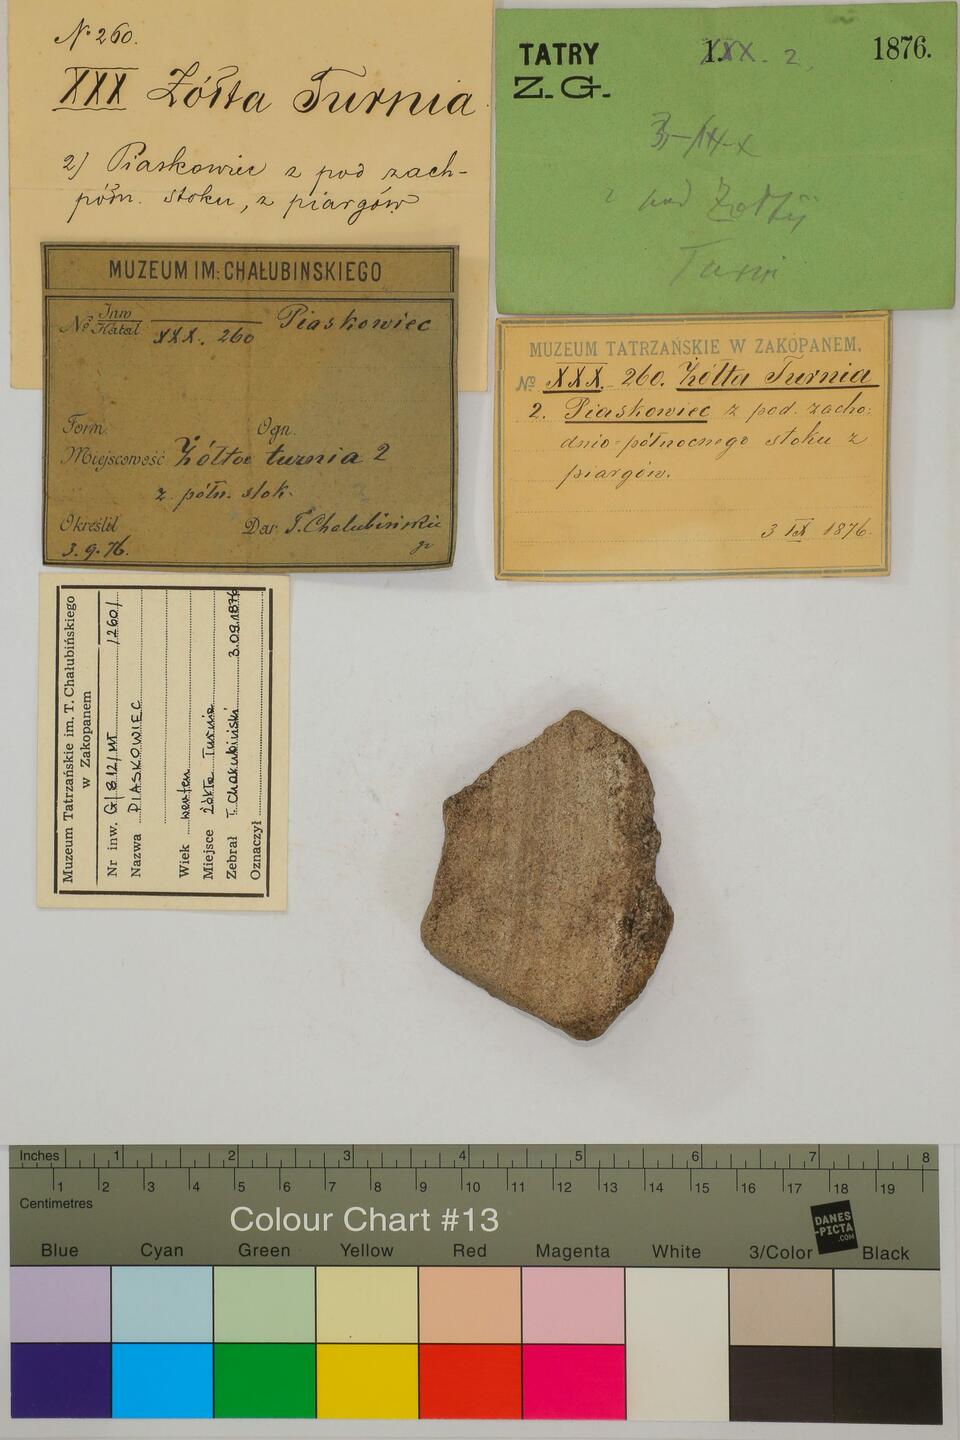 No 260.
XXX Żółta Turnia
2) Piaskowiec z pod zach-
półn. stoku, z piargów
TATRY 1876.
Z. G.
XXX. 2,
z pod Żółtej
Turni
MUZEUM IM: CHAŁUBINSKIEGO
No Inw Katal XXX. 260 Piaskowiec
Form. Ogn.
Miejscowość Żółta turnia 2
z. półn. stok.
Określił Dar: T. Chałubińskie
3. 9. 76. go
MUZEUM TATRZAŃSKIE W ZAKOPANEM.
No XXX. 260. Żółta Turnia
2. Piaskowiec z pod. zacho-
dnio-północnego stoku z
piargów.
3 IX 1876.
Muzeum Tatrzańskie im. T. Chałubińskiego
w Zakopanem
Nr inw. G/812/MT /260/
Nazwa PIASKOWIEC
Wiek werfen
Miejsce Żółta Turnia
Zebrał T. Chałubiński 3.09.1876
Oznaczył
Inches 1 2 3 4 5 6 7 8
1 2 3 4 5 6 7 8 9 10 11 12 13 14 15 16 17 18 19
Centimetres
Colour Chart #13
DANES
-PICTA
.COM
Blue Cyan Green Yellow Red Magenta White 3/Color Black